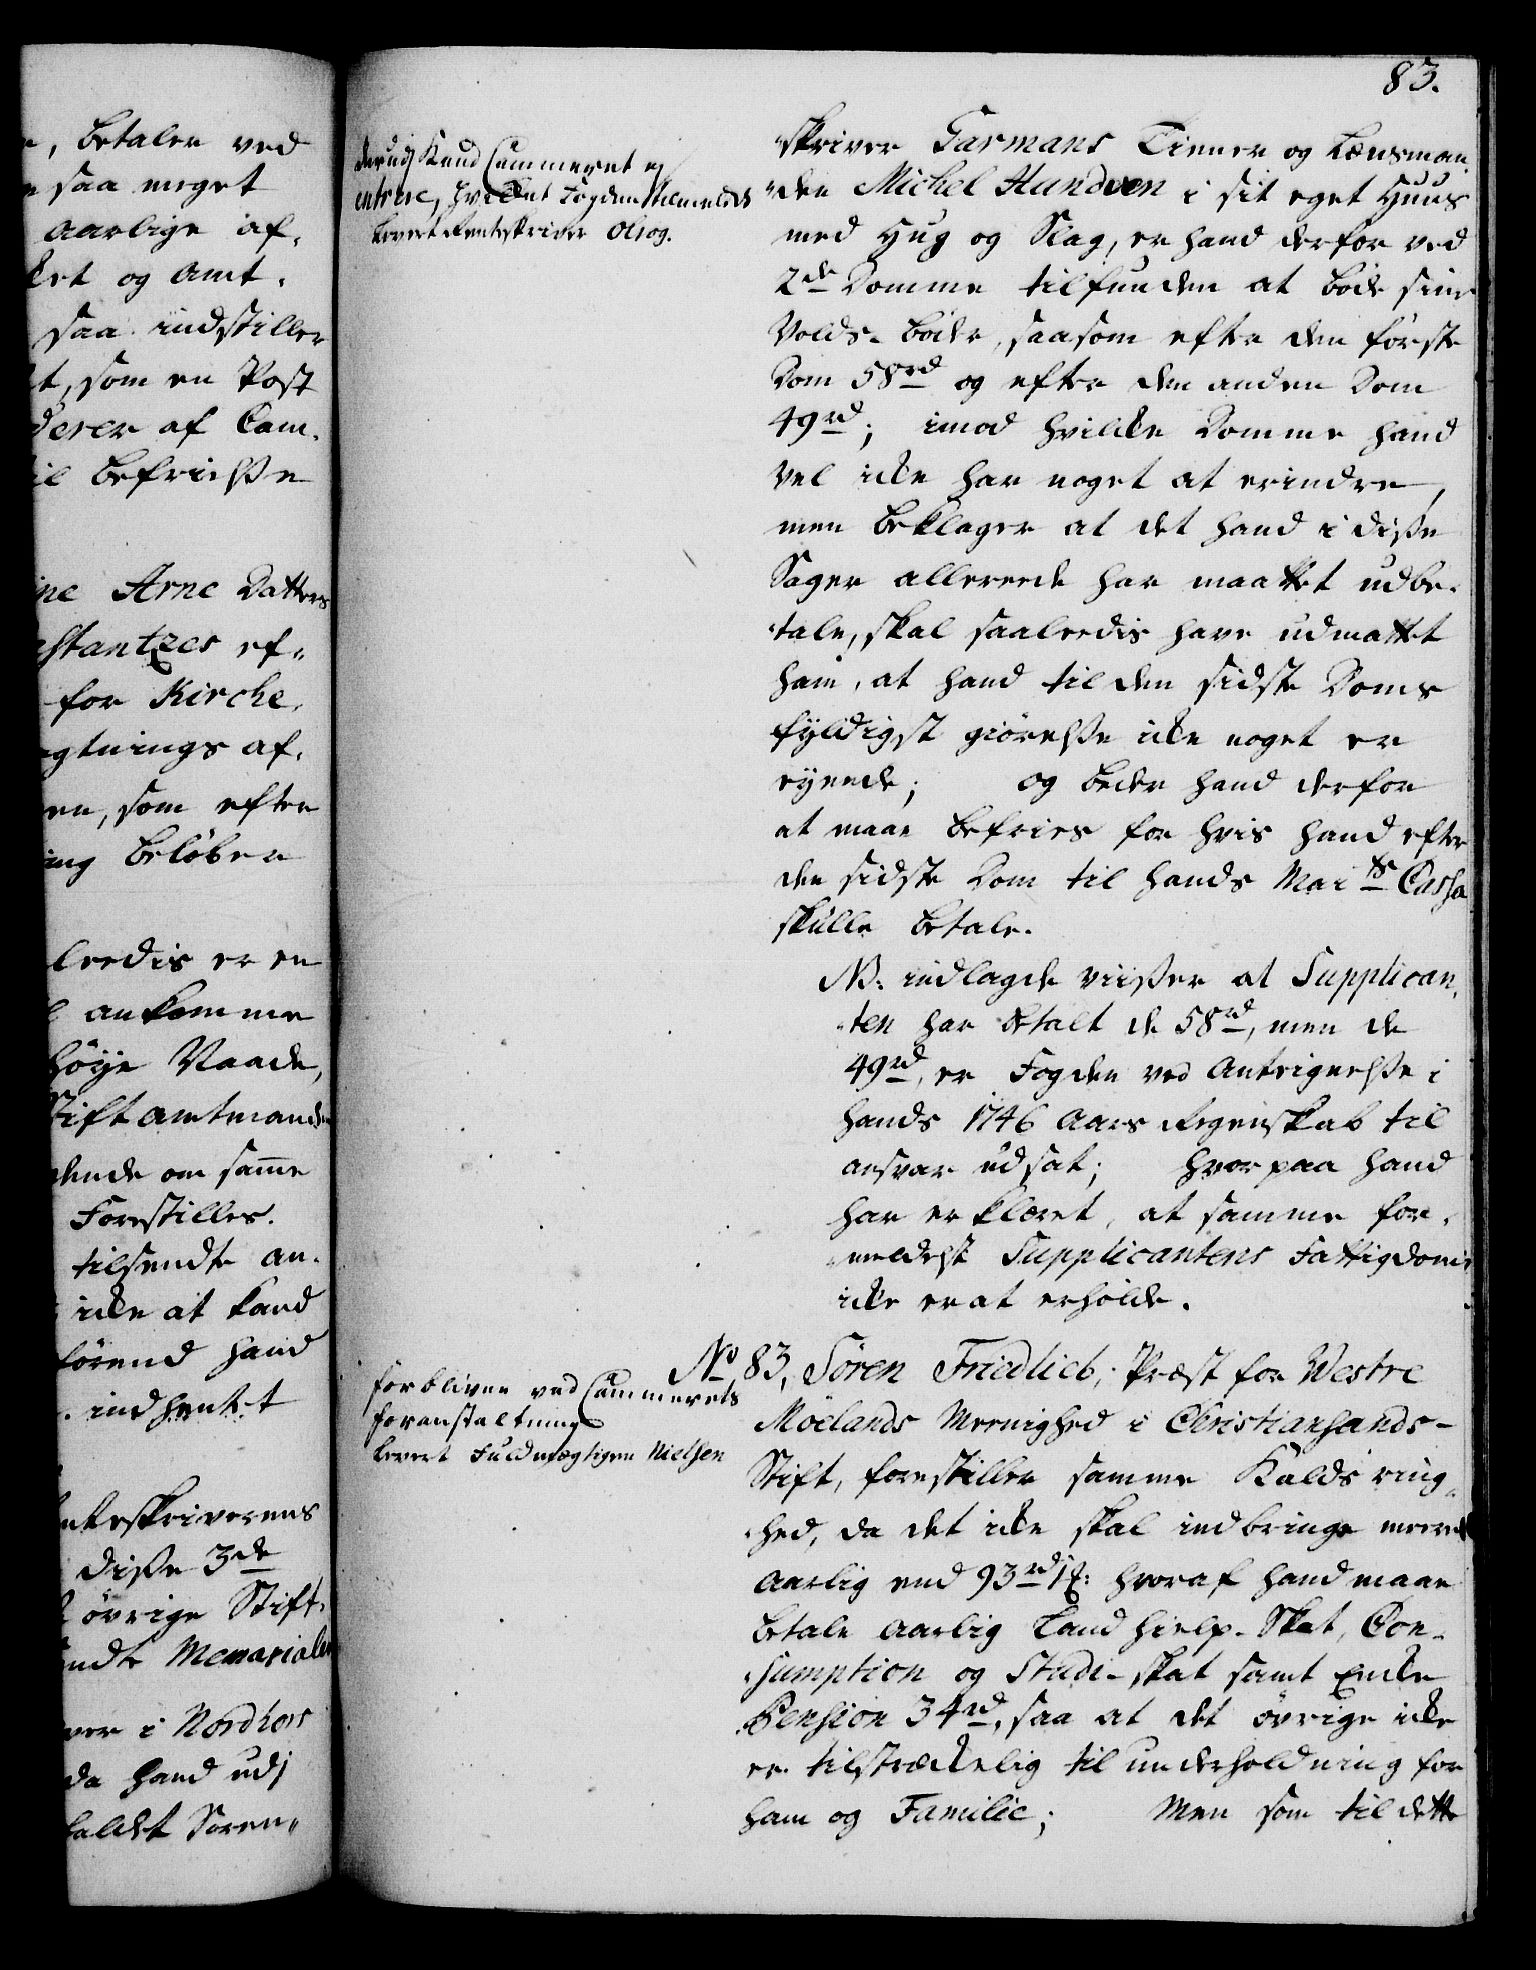 83.
e, betaler ved
saa meget
aarlige af-
ket og Amt.
saa indstiller
t, som en Post
derer af Cam-
il befrielsse
ine Arne Datters
stantzes ef-
for Kirche-
gtnings af-
en, som efter
ing beløber
leedis er en
ankomme
høye Naade,
Stiftamtmanden
dende om samme
Forestilles.
tilsendte an-
icke at kand
førend hand
indhentet
nteskriverens
disse 3de
øvrige Stift-
endte Memorialer
ver i Nordhors
da hand udj
faldet Soren-
derudj Kand Cammeret ej
entrere, hvilket Fogden tilmeldes
levert Renteskriver Olrog.
skriver Garmans Tiener og Lænsman-
den Michel Hundven i sit eget Huus
med Hug og Slag, er hand derfor ved
2de Domme tilfunden at bøde sine
Volds-bøder, saasom efter den første
Dom 58rd og efter den anden Dom
49rd; imod hvilcke Domme hand
vel icke har noget at erindre,
men beklager at det hand i disse
Sager allereede har maattet udbe-
tale, skal saaleedis have udmattet
ham, at hand til den sidste Doms
fyldigst giørelsse icke noget er
eyende; og beder hand derfor
at maae befries for hvis hand efter
den sidste Dom til hands Maits Cassa
skulle betale.
NB: indlagde viisser at Supplican-
ten har betalt de 58rd, men de
49rd, er Fogden ved Antegnelsse i
hands 1746 Aars Regenskab til
ansvar udsat; hvorpaa hand
har erklæret, at samme for-
meedelst Supplicantens Fattigdom
icke er at erholde.
forbliver ved Cammerets
foranstaltning
levert Fuldmægtigen Nielsen
No 83, Søren Friedlieb, Præst for Westre
Moelands Meenighed i Christiansands-
Stift, forestiller samme Kalds ring-
hed, da det icke skal indbringe meere
Aarlig end 93rd 1 ß: hvoraf hand maae
betale Aarlig Landhielp-Skat, Con-
sumption og Studi-skat samt Encke
Pension 34rd, saa at det øvrige icke
er tilstræckelig til underholdning for
ham og Familie; Men som til dette